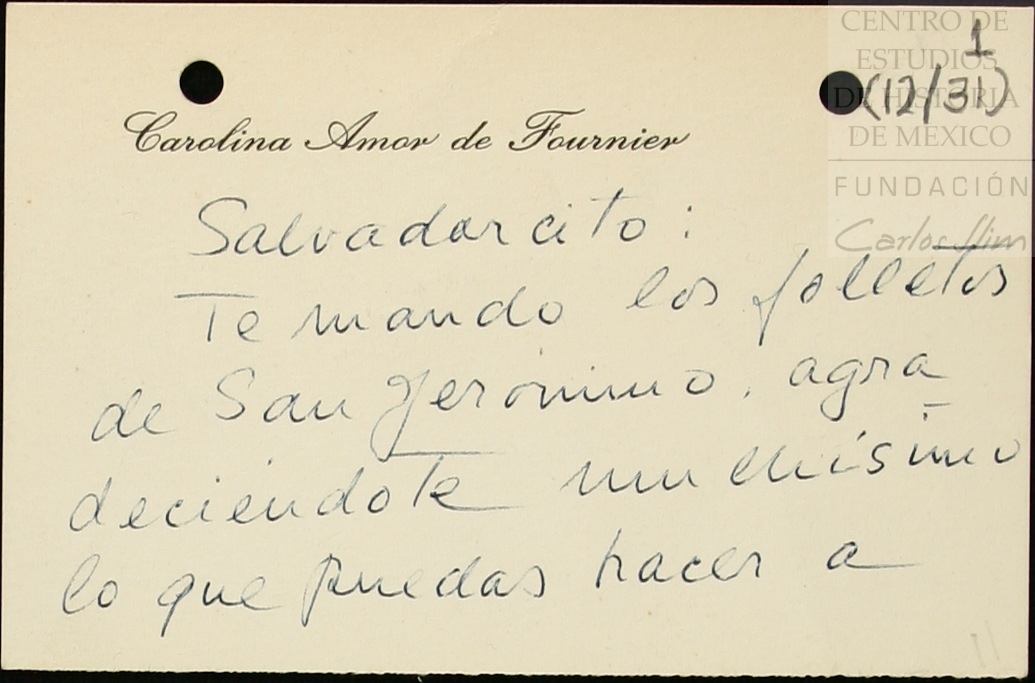 CENTRO DE
ESTUDIOS
DE HISTORIA
DE MEXICO
FUNDACIÓN
Carlos Slim
1
(12/31)
Carolina Amor de Fournier
Salvadorcito:
Te mando los folletos
de San Jerónimo, agra
deciendote muchísimo
lo que puedas hacer a